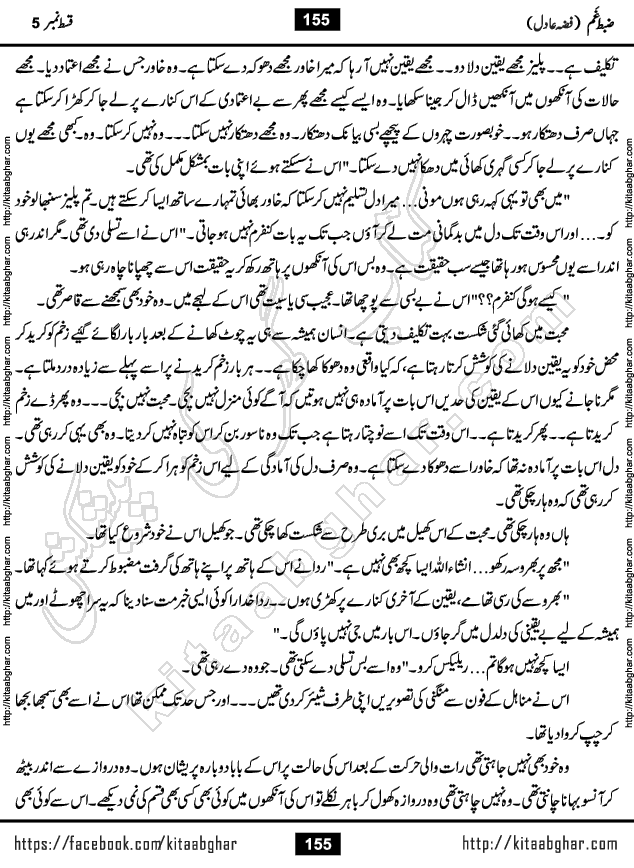 ضبطِ غم (فضہ عادل) 155 قسط نمبر 5
تکلیف ہے۔۔ پلیز مجھے یقین دلا دو۔۔ مجھے یقین نہیں آ رہا کہ میرا خاور مجھے دھوکہ دے سکتا ہے۔ وہ خاور جس نے مجھے اعتماد دیا۔ مجھے
حالات کی آنکھوں میں آنکھیں ڈال کر جینا سکھایا۔ وہ ایسے کیسے مجھے پھر سے بے اعتمادی کے اس کنارے پر لے جا کر کھڑا کر سکتا ہے
جہاں صرف دھتکار ہو۔۔ خوبصورت چہروں کے پیچھے بسی بھیانک دھتکار۔۔۔ وہ نہیں کر سکتا۔ وہ مجھے دھتکار نہیں سکتا۔ وہ کبھی مجھے یوں
کنارے پر لے جا کر کسی گہری کھائی میں دھکا نہیں دے سکتا۔" اس نے سسکتے ہوئے اپنی بات بمشکل مکمل کی تھی۔
"میں بھی تو یہی کہہ رہی ہوں مونی... میرا دل تسلیم نہیں کر سکتا کہ خاور بھائی تمہارے ساتھ ایسا کر سکتے ہیں۔ تم پلیز سنبھالو خود
کو۔... اور اس وقت تک دل میں بدگمانی مت لے کر آؤ جب تک یہ بات کنفرم نہیں ہو جاتی۔" اس نے اسے تسلی دی تھی۔ مگر اندر ہی
اندر اسے یوں محسوس ہو رہا تھا جیسے سب حقیقت ہے۔ وہ بس اس کی آنکھوں پر ہاتھ رکھ کر یہ حقیقت اس سے چھپانا چاہ رہی ہو۔
"کیسے ہوگی کنفرم؟؟" اس نے بے بسی سے پوچھا تھا۔ عجیب سی یاسیت تھی اس کے لہجے میں۔ وہ خود بھی سمجھنے سے قاصر تھی۔
محبت میں کھائی گئی شکست بہت تکلیف دیتی ہے۔ انسان ہمیشہ سے ہی یہ چوٹ کھانے کے بعد بار بار لگائے گئے زخم کو کرید کر
محض خود کو یہ یقین دلانے کی کوشش کرتا رہتا ہے، کہ کیا واقعی وہ دھوکا کھا چکا ہے۔۔ ہر بار زخم کریدنے پر اسے پہلے سے زیادہ درد ملتا ہے۔
مگر نا جانے کیوں اس کے یقین کی حدیں اس بات پر آمادہ ہی نہیں ہوتیں کہ آگے کوئی منزل نہیں بچی۔ محبت نہیں بچی۔۔۔ وہ پھر ڈے زخم
کریدتا ہے۔۔ پھر کریدتا ہے۔۔ اس وقت تک اسے نوچتا رہتا ہے جب تک وہ ناسور بن کر اس کو تباہ نہیں کر دیتا۔ وہ بھی یہی کر رہی تھی۔
دل اس بات پر آمادہ نہ تھا کہ خاور اسے دھوکا دے سکتا ہے۔ وہ صرف دل کی آمادگی کے لیے اس زخم کو ہرا کر کے خود کو یقین دلانے کی کوشش
کر رہی تھی کہ وہ ہار چکی تھی۔
ہاں وہ ہار چکی تھی۔ محبت کے اس کھیل میں بری طرح سے شکست کھا چکی تھی۔ جو کھیل اس نے خود شروع کیا تھا۔
"مجھ پر بھروسہ رکھو... انشاءاللہ ایسا کچھ بھی نہیں ہے۔" ردا نے اس کے ہاتھ پر اپنے ہاتھ کی گرفت مضبوط کرتے ہوئے کہا تھا۔
"بھروسے کی رسی تھامے، یقین کے آخری کنارے پر کھڑی ہوں۔۔ ردا خدارا کوئی ایسی خبر مت سنا دینا کہ یہ سرا چھوٹے اور میں
ہمیشہ کے لیے بے یقینی کی دلدل میں گر جاؤں۔ اس بار میں جی نہیں پاؤں گی۔"
ایسا کچھ نہیں ہو گا تم... ریلیکس کرو۔" وہ اسے بس تسلی دے سکتی تھی۔ جو وہ دے رہی تھی۔
اس نے مناہل کے فون سے منگنی کی تصویریں اپنی طرف شیئر کر دی تھیں۔۔۔ اور جس حد تک ممکن تھا اس نے اسے بھی سمجھا بجھا
کر چپ کروا دیا تھا۔
وہ خود بھی نہیں چاہتی تھی رات والی حرکت کے بعد اس کی حالت پر اس کے بابا دوبارہ پریشان ہوں۔ وہ دروازے سے اندر بیٹھ
کر آنسو بہانا جانتی تھی۔ وہ نہیں چاہتی تھی وہ دروازہ کھول کر باہر نکلے تو اس کی آنکھوں میں کوئی بھی کسی بھی قسم کی نمی دیکھے۔ اس سے کوئی بھی
http://kitaabghar.com http://kitaabghar.com http://kitaabghar.com http://kitaabghar.com http://kitaabghar.com http://kitaabghar.com
http://kitaabghar.com http://kitaabghar.com http://kitaabghar.com http://kitaabghar.com http://kitaabghar.com http://kitaabghar.com
کتاب گھر کی پیشکش
kitaabghar.com
https://facebook.com/kitaabghar 155 http://kitaabghar.com